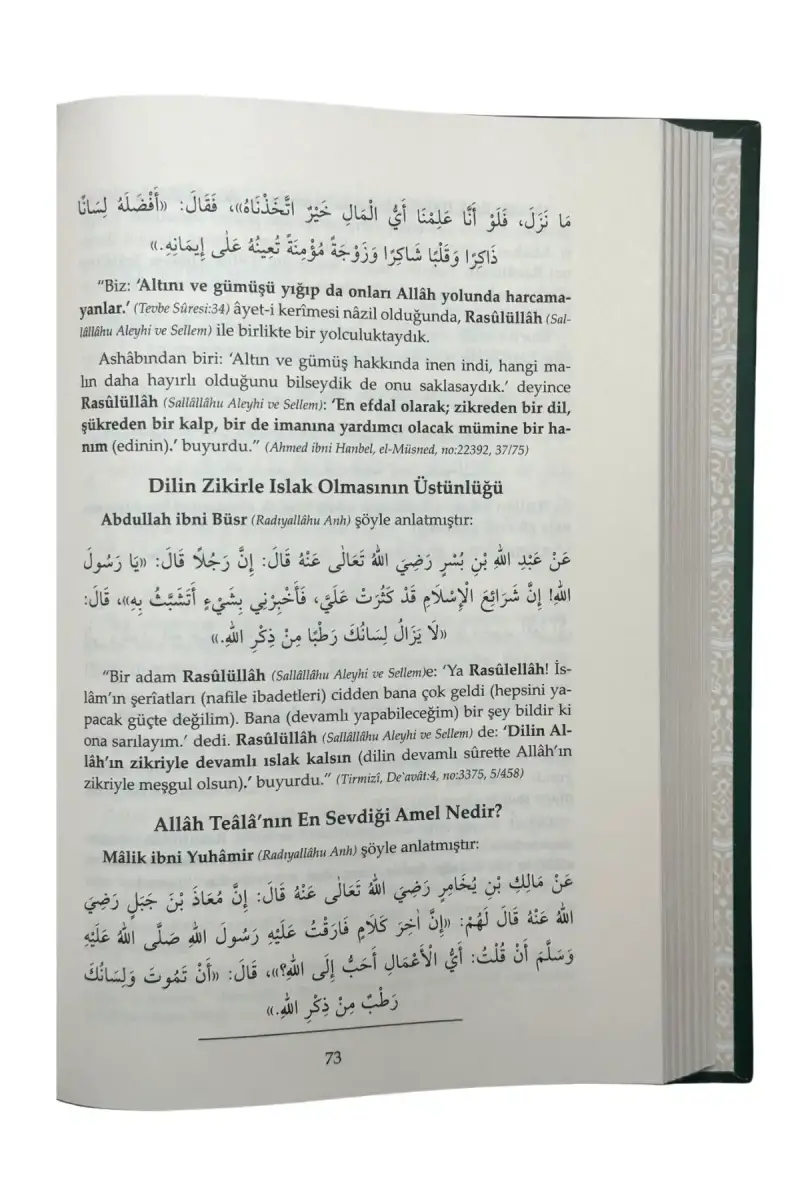 مَا نَزَلَ، فَلَوْ أَنَّا عَلِمْنَا أَيُّ الْمَالِ خَيْرٌ اتَّخَذْنَاهُ»، فَقَالَ: «أَفْضَلُهُ لِسَانًا
ذَاكِرًا وَقَلْبًا شَاكِرًا وَزَوْجَةً مُؤْمِنَةً تُعِينُهُ عَلَى إِيمَانِهِ.»
"Biz: ‘Altını ve gümüşü yığıp da onları Allâh yolunda harcama-
yanlar.’ (Tevbe Sûresi:34) âyet-i kerîmesi nâzil olduğunda, Rasûlüllâh (Sal-
lâllâhu Aleyhi ve Sellem) ile birlikte bir yolculuktaydık.
Ashâbından biri: ‘Altın ve gümüş hakkında inen indi, hangi ma-
lın daha hayırlı olduğunu bilseydik de onu saklasaydık.’ deyince
Rasûlüllâh (Sallâllâhu Aleyhi ve Sellem): ‘En efdal olarak; zikreden bir dil,
şükreden bir kalp, bir de imanına yardımcı olacak mümine bir ha-
nım (edinin).’ buyurdu." (Ahmed ibni Hanbel, el-Müsned, no:22392, 37/75)
Dilin Zikirle Islak Olmasının Üstünlüğü
Abdullah ibni Büsr (Radıyallâhu Anh) şöyle anlatmıştır:
عَنْ عَبْدِ اللهِ بْنِ بُسْرٍ رَضِيَ اللهُ تَعَالَى عَنْهُ قَالَ: إِنَّ رَجُلًا قَالَ: «يَا رَسُولَ
اللهِ! إِنَّ شَرَائِعَ الْإِسْلَامِ قَدْ كَثُرَتْ عَلَيَّ، فَأَخْبِرْنِي بِشَيْءٍ أَتَشَبَّثُ بِهِ»، قَالَ:
«لَا يَزَالُ لِسَانُكَ رَطْبًا مِنْ ذِكْرِ اللهِ.»
"Bir adam Rasûlüllâh (Sallâllâhu Aleyhi ve Sellem)e: ‘Ya Rasûlellâh! İs-
lâm’ın şerîatları (nafile ibadetleri) cidden bana çok geldi (hepsini ya-
pacak güçte değilim). Bana (devamlı yapabileceğim) bir şey bildir ki
ona sarılayım.’ dedi. Rasûlüllâh (Sallâllâhu Aleyhi ve Sellem) de: ‘Dilin Al-
lâh’ın zikriyle devamlı ıslak kalsın (dilin devamlı sûrette Allâh’ın
zikriyle meşgul olsun).’ buyurdu." (Tirmizî, De`avât:4, no:3375, 5/458)
Allâh Teâlâ’nın En Sevdiği Amel Nedir?
Mâlik ibni Yuhâmir (Radıyallâhu Anh) şöyle anlatmıştır:
عَنْ مَالِكِ بْنِ يُخَامِرٍ رَضِيَ اللهُ تَعَالَى عَنْهُ قَالَ: إِنَّ مُعَاذَ بْنَ جَبَلٍ رَضِيَ
اللهُ عَنْهُ قَالَ لَهُمْ: «إِنَّ اٰخِرَ كَلَامٍ فَارَقْتُ عَلَيْهِ رَسُولَ اللهِ صَلَّى اللهُ عَلَيْهِ
وَسَلَّمَ أَنْ قُلْتُ: أَيُّ الْأَعْمَالِ أَحَبُّ إِلَى اللهِ؟»، قَالَ: «أَنْ تَمُوتَ وَلِسَانُكَ
رَطْبٌ مِنْ ذِكْرِ اللهِ.»
73